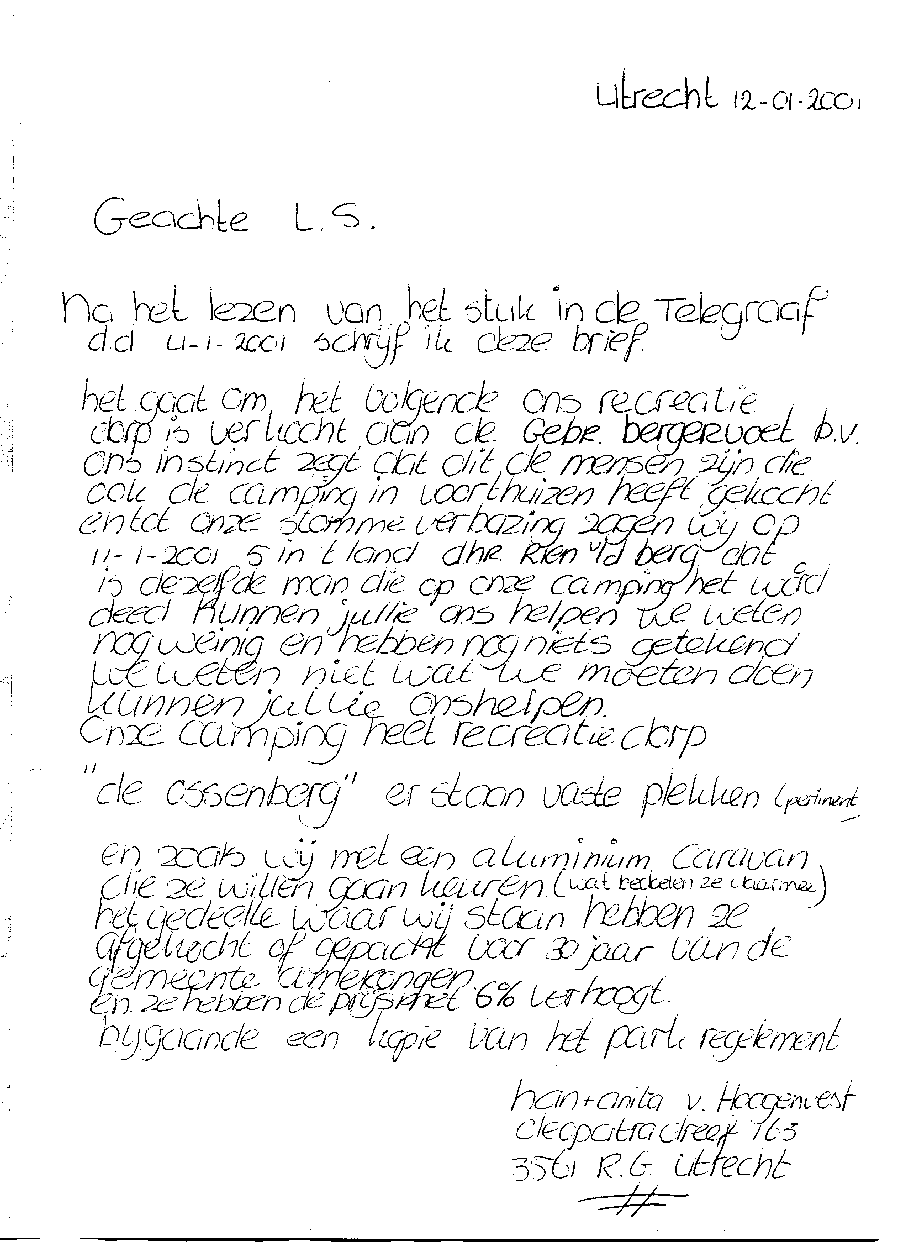 Utrecht 12-01-2001
Geachte L.S.
Na het lezen van het stuk in de Telegraaf
d.d 11-1-2001 schrijf ik deze brief.
het gaat om het volgende ons recreatie
dorp is verkocht aan de Gebr. bergervoet b.v.
ons instinct zegt dat dit de mensen zijn die
ook de camping in voorthuizen heeft gekocht
en tot onze stomme verbazing zagen wij op
11-1-2001 5 in t land dhr. Rien v/d berg dat
is dezelfde man die op onze camping het woord
deed Kunnen jullie ons helpen we weten
nog weinig en hebben nog niets getekend
we weten niet wat we moeten doen
kunnen jullie ons helpen.
Onze camping heet recreatie.dorp
"de ossenberg" er staan vaste plekken (pertinent
en zoals wij met een aluminium caravan
die ze willen gaan keuren (wat bedoelen ze daarmee)
het gedeelte waar wij staan hebben ze
afgekocht of gepacht voor 30 jaar van de
gemeente amerongen
en ze hebben de prijs met 6% verhoogt.
bijgaande een kopie van het park regelement
han + anita v. Hoogenvest
cleopatradreef 163
3561 R.G. Utrecht